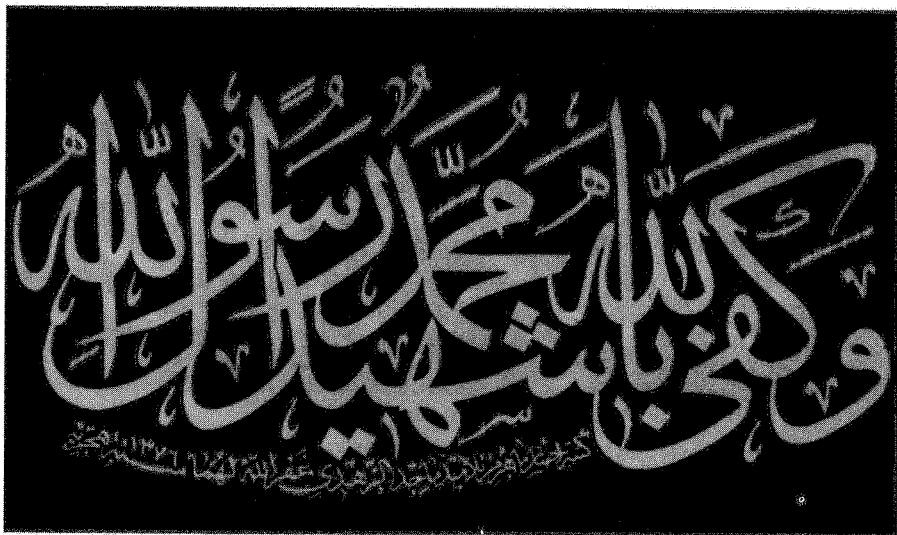 وَكَفَى بِاللَّهِ شَهِيدًا مُحَمَّدٌ رَسُولُ اللَّهِ
كتبه من تلاميذ الزهدي غفر الله لهما سنة ١٣٧٦